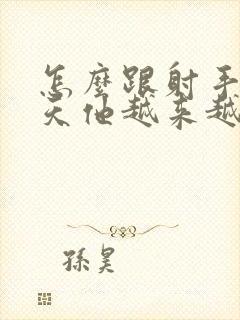 怎麼跟射手
天他越来越
孫昊